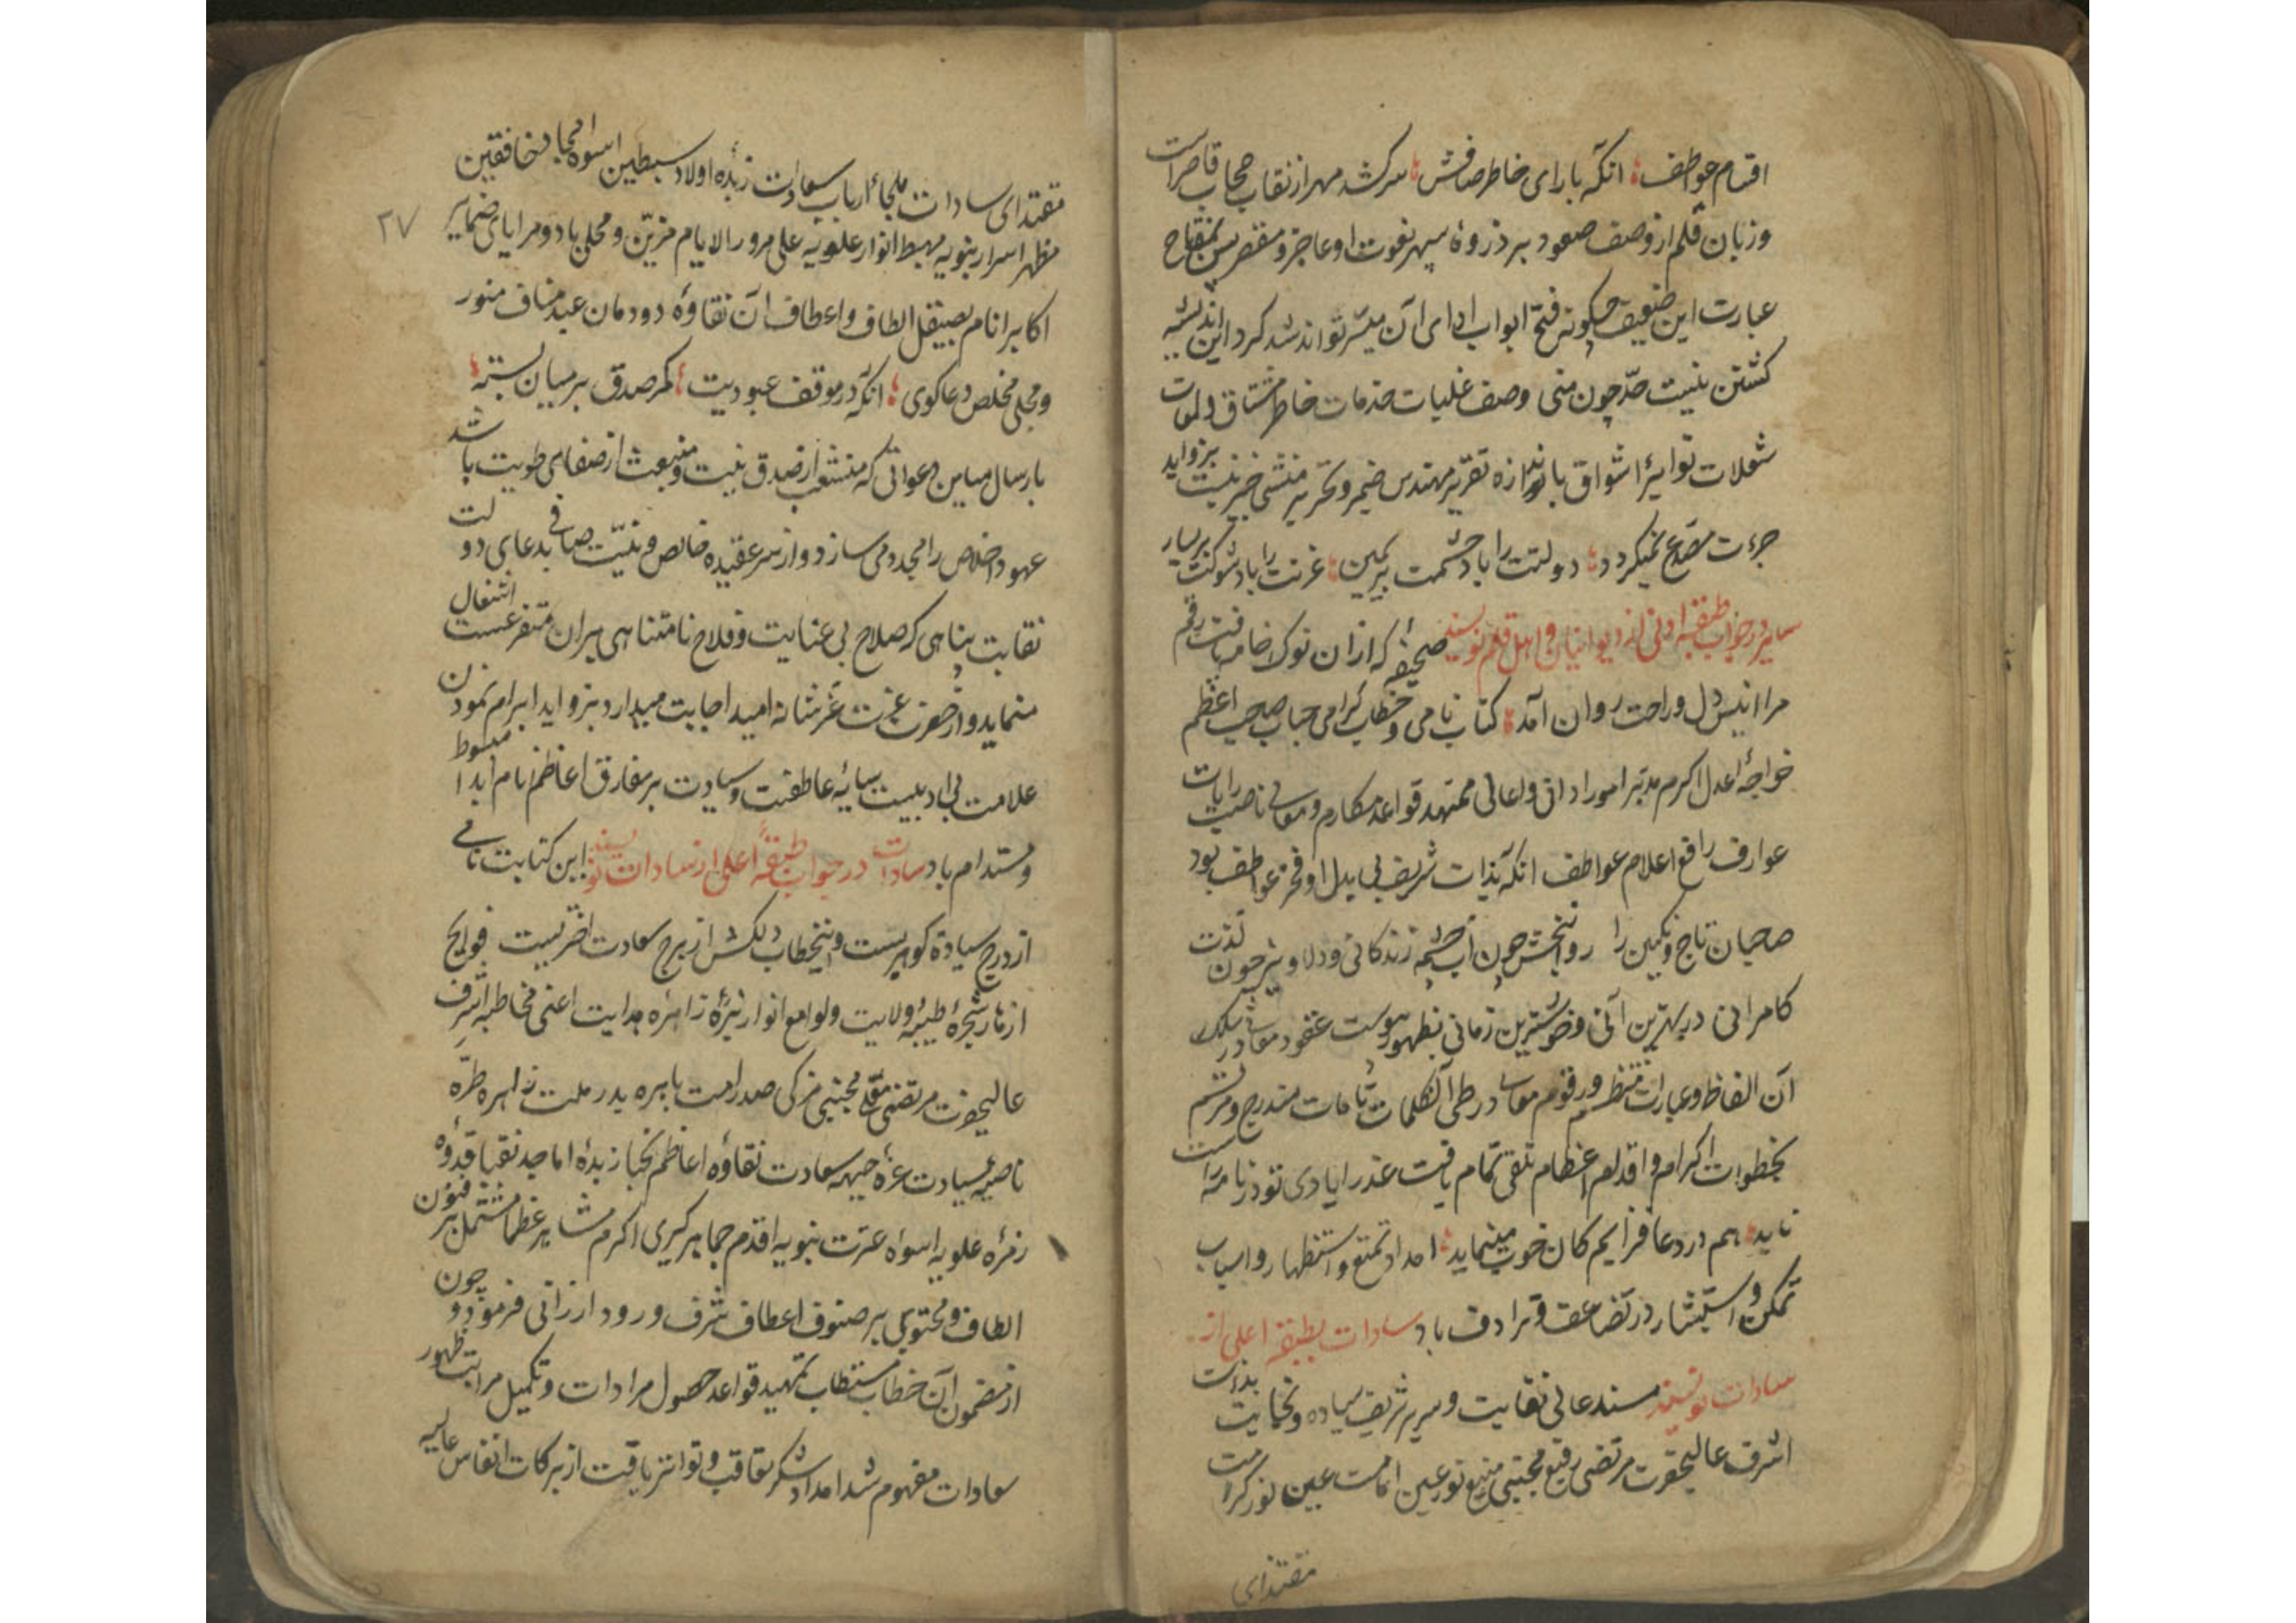 اقسام عواطف؛ انکه بارای خاطر صافش؛ سرکشد مهر از نقاب حجاب قاصر است
وزبان قلم از وصف صعود بر ذروهٔ سپهر نعوت او عاجز و مقصر پس بمفتاح
عبارت این ضعیف چکونه فتح ابواب ادای آن میسر تواند شد کرد این اندیشه
کشتن نیست حدّ چون منی وصف غلیات خدمات خاطر مشتاق و لمعات
شعلات نوایر اشواق باندازه تقریر مهندس ضمیر و تحریر منشی خبیر نیست بزواید
جرءت مصدع نمیکردد؛ دولتت را باد حشمت بر یمین؛ عزتت را باد شوکت بر یسار
سایر در جواب طبقه ادنی از دیوانیان و اهل قلم نویسند صحیفهٔ که ازان نوک خامه یافت رقم
مرا انیس دل و راحت روان آمد؛ کتاب نامی و خطاب کرامی جناب صاحب اعظم
خواجهٔ اعدل اکرم مدبر امور ادانی و اعالی ممهد قواعد مکارم و معالی ناصب رایات
عوارف رافع اعلام عواطف انکه بذات شریف بی بدل او فخر عواطف بود
صاحبان تاج و نکین را روانبخش چون آب چشمه زندکانی و دلاویز چون لذت
کامرانی در بهترین آنی و خوشترین زمانی بظهور پیوست عقود معانی در سلک
آن الفاظ و عبارات منتظم و رقوم معانی در طی آنکلمات تامات مندرج و مرتسم
بخطوات اکرام و اقدام اعظام تلقی تمام یافت عذر ایادی تو در نامه است
ناید؛ هم در دعا فزایم کان خوب مینماید؛ امداد تمتع و استظهار و اسباب
تمکن و استبشار در تضاعف و ترادف باد سادات بطبقه اعلی از
سادات نویسند مسند عالی نقابت و سریر شریف سیاده و نجابت بذات
اشرف عالیحضرت مرتضی رفیع مجتبی منیع نور عین امامت عین نور کرامت
مقتدای
مقتدای سادات ملجاء ارباب سعادت زبدهٔ اولاد سبطین اسوه امجاد خافقین
۲۷
مظهر اسرار نبویه مهبط انوار علویه علی مرور الایام مزین و محلی باد و مرایای ضمایر
اکابر انام بصیقل الطاف و اعطاف آن نقاوهٔ دودمان عبد مناف منور
ومجلی مخلص دعاکوی؛ انکه در موقف عبودیت؛ کمر صدق بر میان بسته؛
بارسال میامین دعواتی که منشعب از صدق نیت و منبعث از صفای طویت باشد
عهود اخلاص را مجدد می سازد و از سر عقیده خالص و نیت صافی بدعای دولت
نقابت پناهی که صلاح بی عنایت و فلاح نامتناهی بران متفرعست اشتغال
مینماید و از حضرت عزت عز شانه امید اجابت میدارد بزواید ابرام نمودن
علامت بی ادبیست سایهٔ عاطفت و سیادت بر مفارق اعاظم انام ابدا مبسوط
ومستدام باد سادات در جواب طبقه اعلی از سادات نویسند این کتابت نامی
از درج سیادة کوهریست و اینخطاب دلکش از برج سعادت اختریست فوایح
ازهار شجرهٔ طیبهٔ ولایت و لوامع انوار نیرهٔ زاهره هدایت اعنی مخاطبه اشرف
عالیحضرت مرتضی مقتدی مجتبی مزکی صدر امت باهره بدر ملت زاهره طرّه
ناصیه سیادت غره جبهه سعادت نقاوه اعاظم نجبا زبدهٔ اماجد نقبا قدوه
زمره علویه اسوه عترت نبویه اقدم جماهیر کبری اکرم مشاهیر عظما مشتمل بر فنون
الطاف و محتوی بر صنوف اعطاف شرف ورود ارزانی فرمود و چون
از مضمون آن خطاب مستطاب تمهید قواعد حصول مرادات و تکمیل مراتب ظهور
سعادات مفهوم شد امداد شکر تعاقب و تواتر یافت از برکات انفاس عالیه